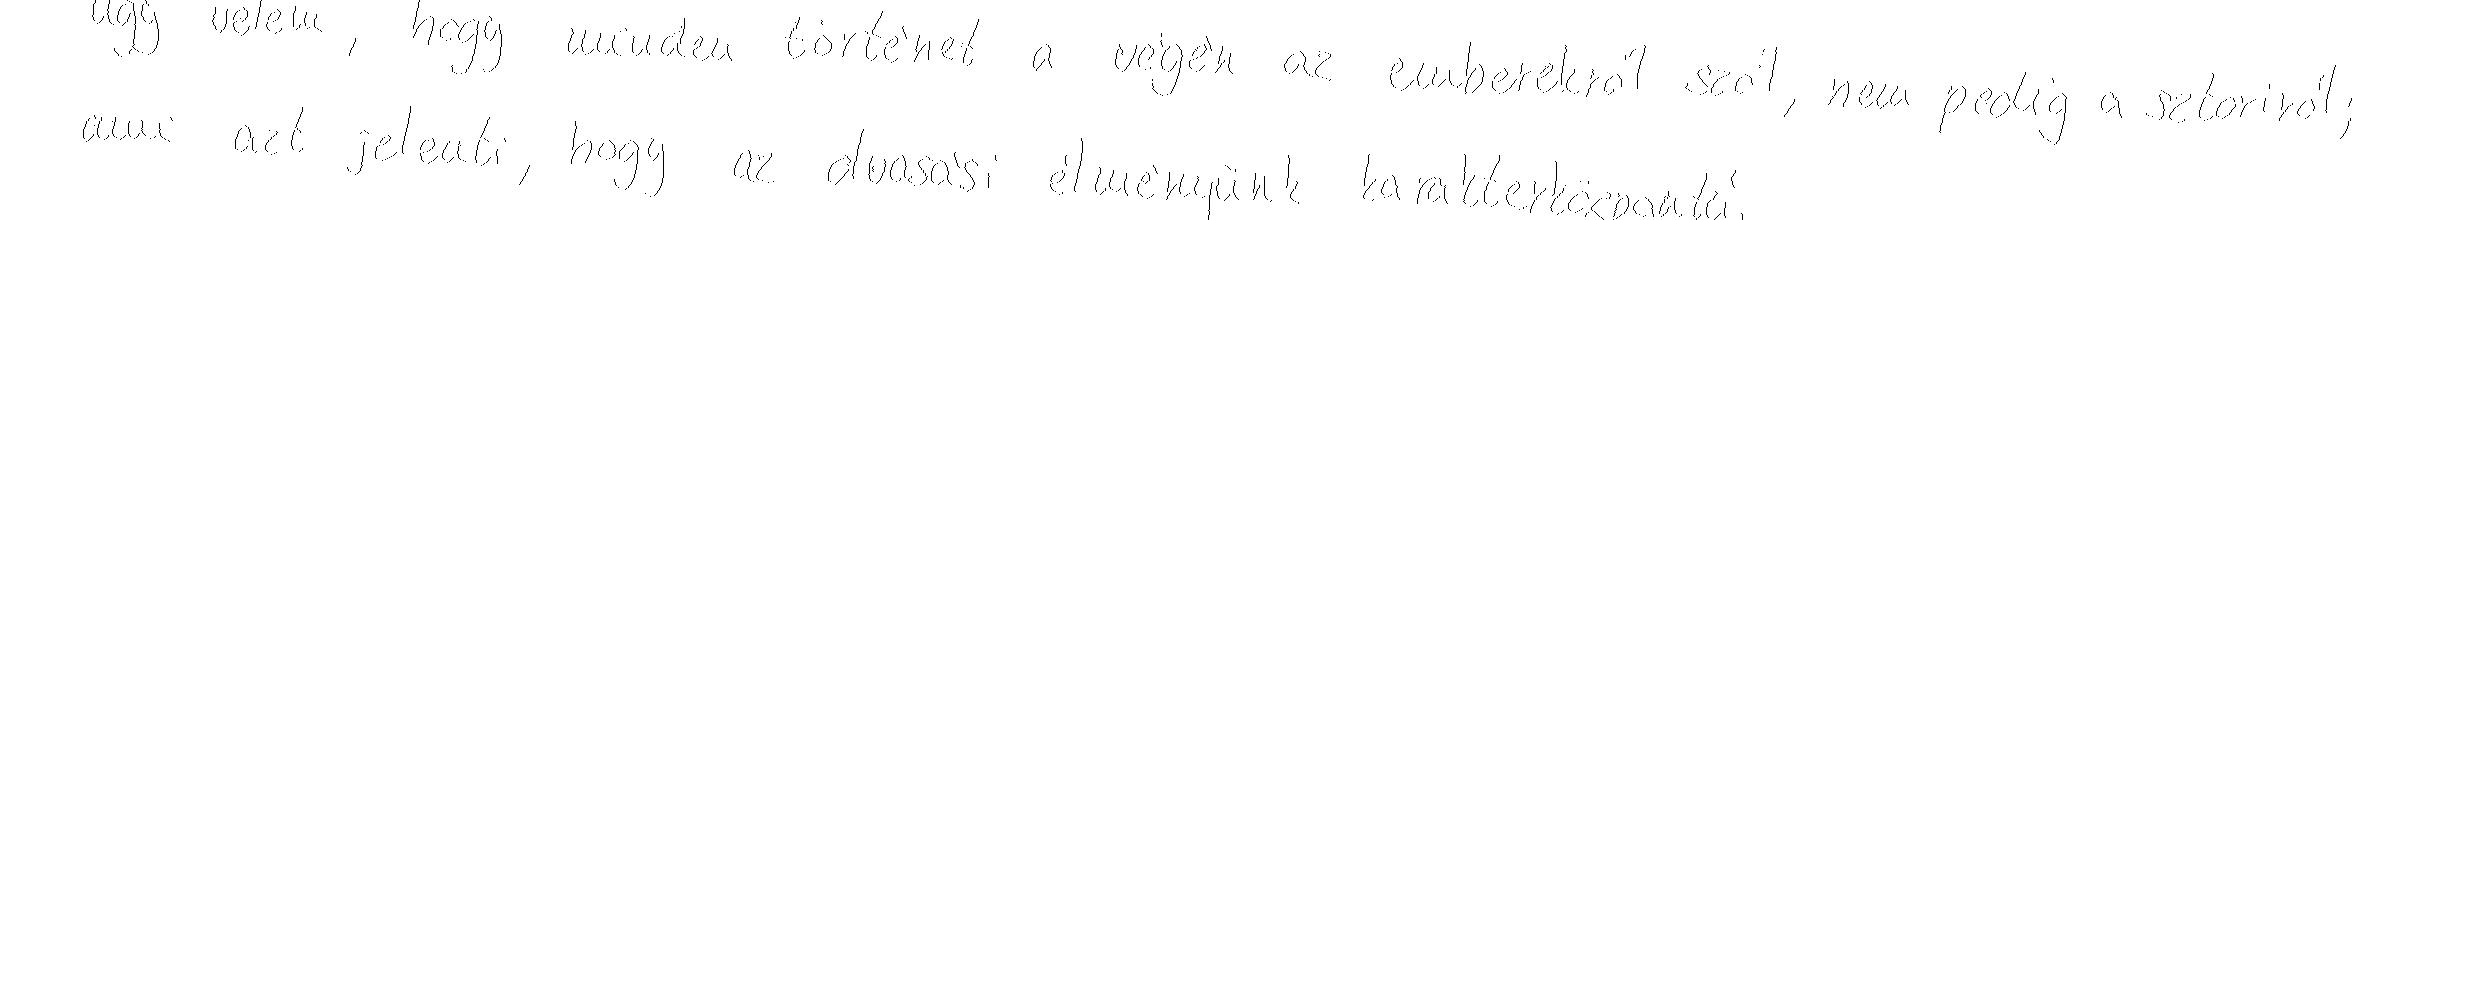 úgy vélem, hogy minden történet a végén az emberekről szól, nem pedig a sztoriról,
ami azt jelenti, hogy az olvasási élményünk karakterközpontú.